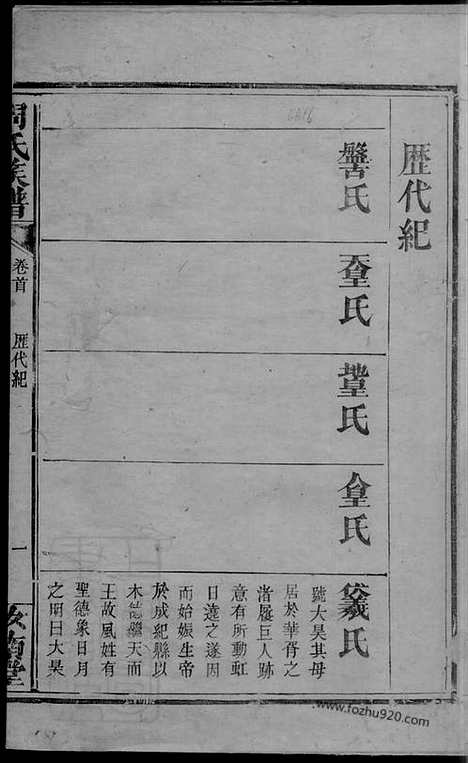 歷代紀
盤古氏
天皇氏
地皇氏
人皇氏
伏羲氏
號大昊其母
居於華胥之
渚履巨人跡
意有所動虹
且遶之遂因
而始娠生帝
於成紀縣以
木德繼天而
王故風姓有
聖德象日月
之明曰大昊
周氏族譜
卷首
歷代紀
一
汝南堂
www.fozhu920.com